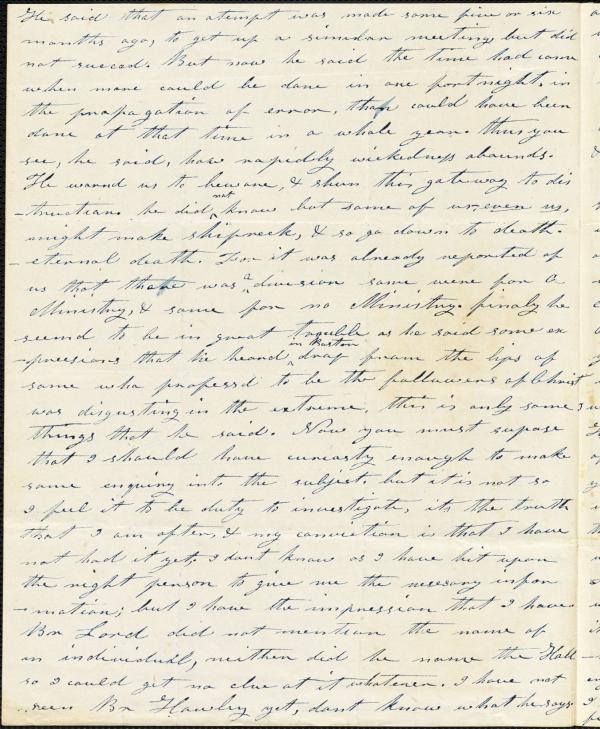 He said that an atempt was made some five or six
months ago, to get up a simular meeting, but did
not succed. But now he said the time had come
when more could be done in one fortnight, in
the propagation of error, than could have been
done at that time in a whole year. thus you
see, he said, how rapidly wickedness abounds.
He warnd us to beware, & shun this gateway to dis
-truction. he did not know but some of us, even us,
might make shipreck, & so go down to death.
-eternal death. For it was already reported of
us that there was a division some were for a
Ministry, & some for no Ministry. finaly he
seemd to be in great trouble as he said some ex
-preesions that he heard in Boston drop from the lips of
some who professd to be the followers of Christ
was disgusting in the extreme, this is only some
things that he said. Now you must supose
that I should have curiosty enough to make
some enquiry into the subject. but it is not so
I feel it to be duty to investigate, its the truth
that I am after, & my conviction is that I have
not had it yet. I dont know as I have hit upon
the right person to give me the nessary infor
-mation; but I have the impression that I have
Bro Lord did not mention the name of
an individual, neither did he name the Hall
so I could get no clue at it whatever. I have not
seen Br Hawley yet, dont know what he says